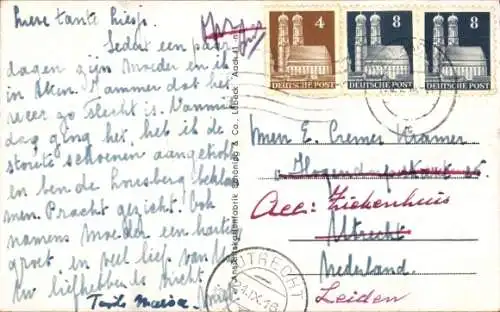 lieve tante Liesje.
Sedert een paar
dagen zijn Moeder en ik
in Aken. Jammer dat het
weer zo slecht is. Vanmid
dag ging het, heb ik de
stoute schoenen aangetrok
en ben de Lousberg beklom
men. Pracht gezicht. Ook
namens Moeder een harte
groet, en veel liefs van
Uw liefhebbende nicht
4
DEUTSCHE POST
8
DEUTSCHE POST
8
DEUTSCHE POST
Ansichtskartenfabrik Schöning & Co., Lübeck
Mevr E. Cremer
Acc: Ziekenhuis
Utrecht
Nederland.
Leiden
UTRECHT